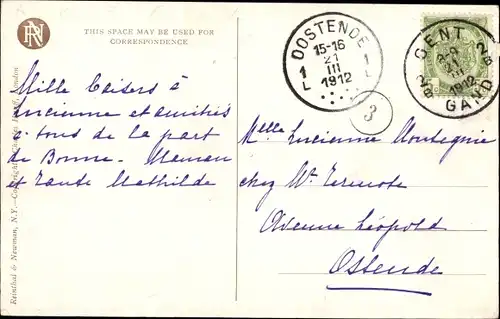 RN
THIS SPACE MAY BE USED FOR
CORRESPONDENCE
Mille baisers à
Lucienne et amitiés
à tous de la part
de Bonne-Maman
et Tante Mathilde
Reinthal & Newman, N.Y.—Copyright London
OOSTENDE
15-16
21
III
1912
1 L
1 L
3
GENT
21
III
1912
GAND
2B
2B
Melle Lucienne
chez Mr
Avenue Léopold
Ostende